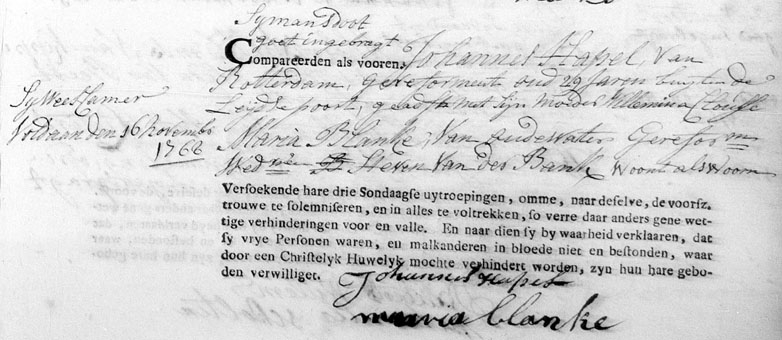 Symans doot
goet ingebragt
Compareerden als vooren. Johannes Hapel, Van
Rotterdam, gereformeert oud 29 Jaren buyten de
Leijdse poort, geadst met Sijn moeder Willemina
Sy Weeskamer
Voldaan den 16 November
1762
Maria Blanke, Van oudewater, gereform
Wedwe Steven Van der Bank, Woont als Voorn
Versoekende hare drie Sondaagse uytroepingen, omme, naar deselve, de voorsz.
trouwe te solemniseren, en in alles te voltrekken, so verre daar anders gene wet-
tige verhinderingen voor en valle. En naar dien sy by waarheid verklaaren, dat
sy vrye Personen waren, en malkanderen in bloede niet en bestonden, waar
door een Christelyk Huwelyk mochte verhindert worden, zyn hun hare gebo-
den verwilliget.
Johannes Hapel
maria blanke